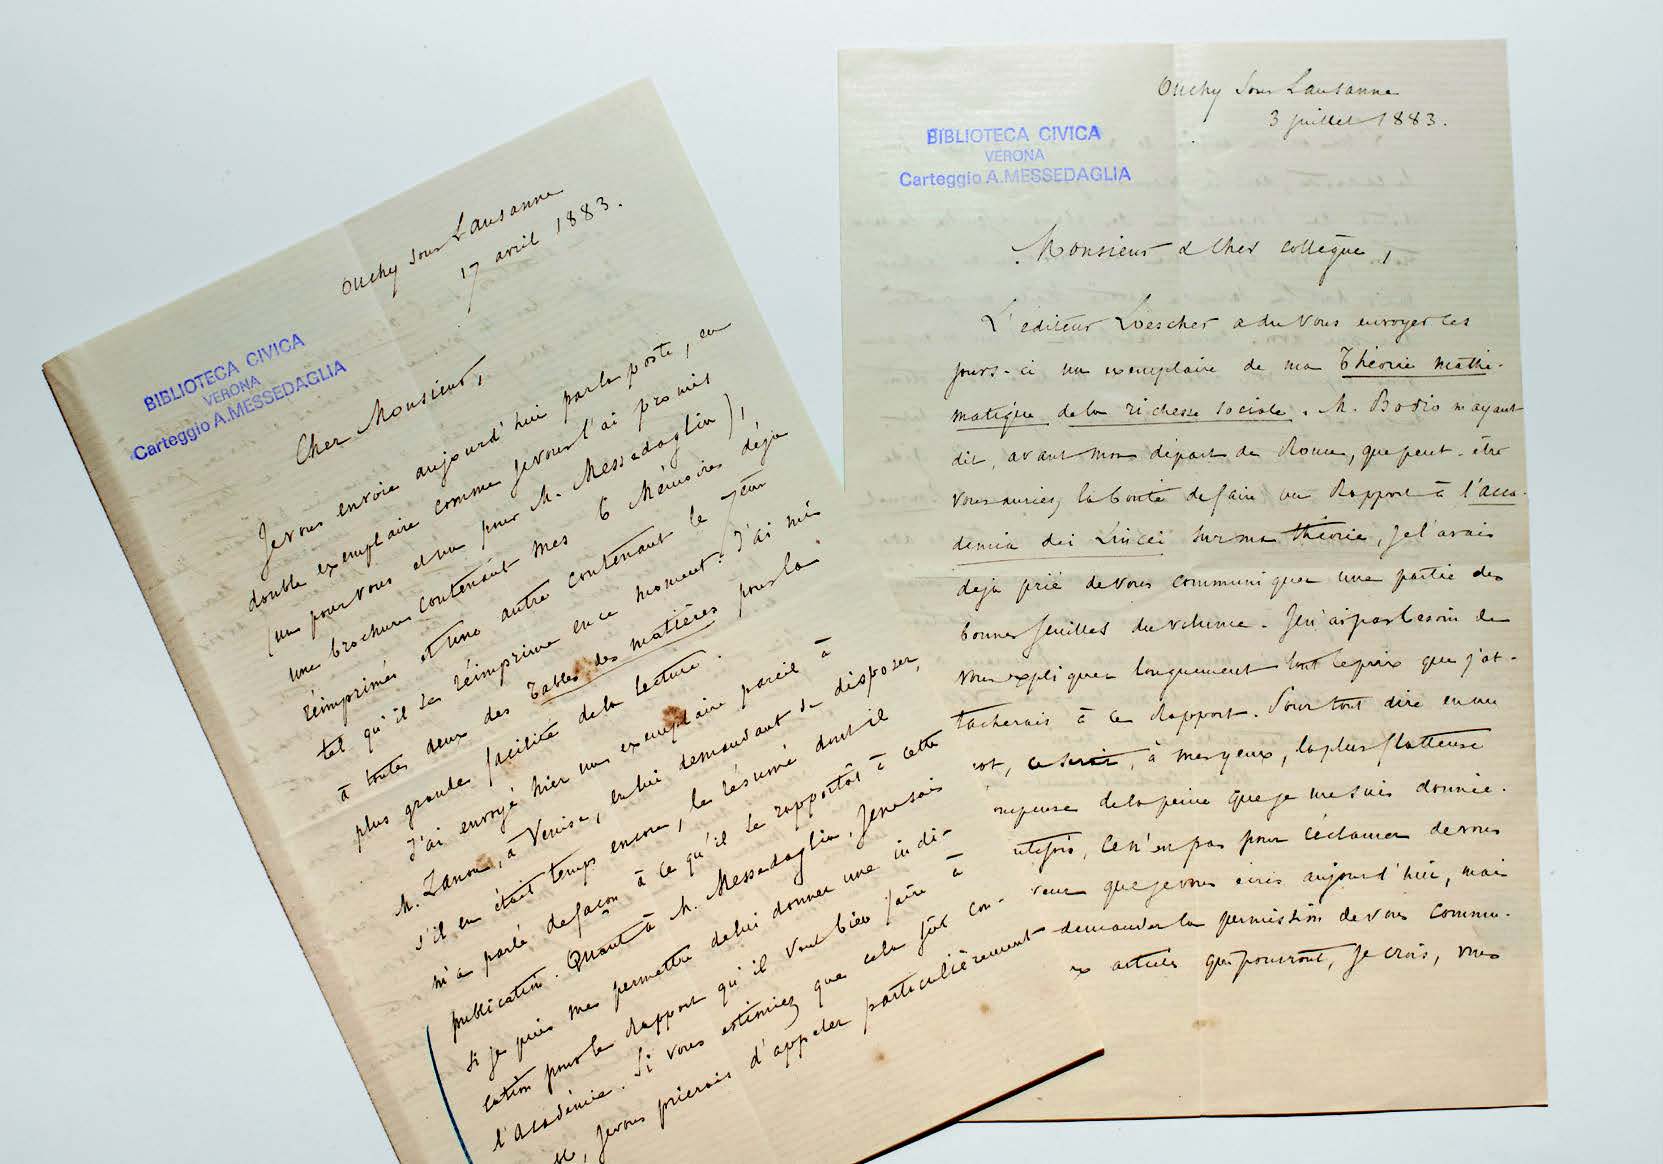 Ouchy sous Lausanne
17 avril 1883.
BIBLIOTECA CIVICA
VERONA
Carteggio A. MESSEDAGLIA
Cher Monsieur,
Je vous envoie aujourd'hui par la poste, en
double exemplaire comme je vous l'ai promis
(un pour vous et un pour M. Messedaglia),
une brochure contenant mes 6 Mémoires déjà
réimprimés et une autre contenant le 7ème
tel qu'il se réimprime en ce moment. J'ai mis
à toutes deux des Tables des matières pour la
plus grande facilité de la lecture.
J'ai envoyé hier un exemplaire pareil à
M. Zanon, à Venise, en lui demandant de disposer,
s'il en était temps encore, le résumé dont il
m'a parlé de façon à ce qu'il se rapportât à cette
publication. Quant à M. Messedaglia, je ne sais
si je puis me permettre de lui donner une indi-
cation pour le Rapport qu'il veut bien faire à
l'Académie. Si vous estimiez que cela fût con-
ble, je vous prierais d'appeler particulièrement
Ouchy sous Lausanne
3 juillet 1883.
BIBLIOTECA CIVICA
VERONA
Carteggio A. MESSEDAGLIA
Monsieur & Cher collègue,
L'éditeur Loescher a du vous envoyer ces
jours-ci un exemplaire de ma Théorie mathé-
matique de la richesse sociale. M. Bodio m'ayant
dit, avant mon départ de Rome, que peut-être
vous auriez la bonté de faire un Rapport à l'Acca-
demia dei Lincei sur ma théorie, je l'avais
déjà prié de vous communiquer une partie des
bonnes feuilles du volume. Je n'ai pas besoin de
vous expliquer longuement tout le prix que j'at-
tacherais à ce Rapport. Pour tout dire en un
ot, ce serait, à mes yeux, la plus flatteuse
mpense de la peine que je me suis donnée.
utefois, ce n'est pas pour réclamer de vous
veur que je vous écris aujourd'hui, mais
demander la permission de vous commu-
x articles qui pourront, je crois, vous